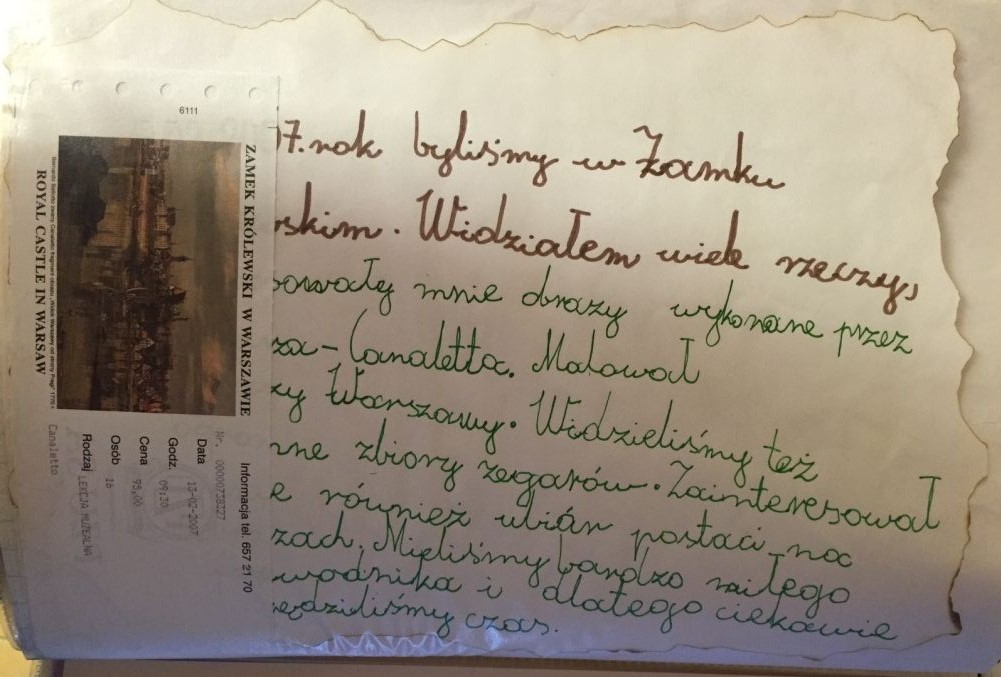 6111
ZAMEK KRÓLEWSKI W WARSZAWIE
ROYAL CASTLE IN WARSAW
Informacja tel. 657 21 70
Nr. 00000738327
Data 13-02-2007
Godz. 09:30
Cena 95,00
Osób 16
Rodzaj LEKCJA MUZEALNA
Canaletto
07.rok byliśmy w Zamku
wskim. Widziałem wiele rzeczy,
sowały mnie obrazy wykonane przez
za-Canaletta. Malował
zy Warszawy. Widzieliśmy też
nne zbiory zegarów. Zainteresował
e również ubiór postaci na
zach. Mieliśmy bardzo miłego
wodnika i dlatego ciekawie
ędziliśmy czas.